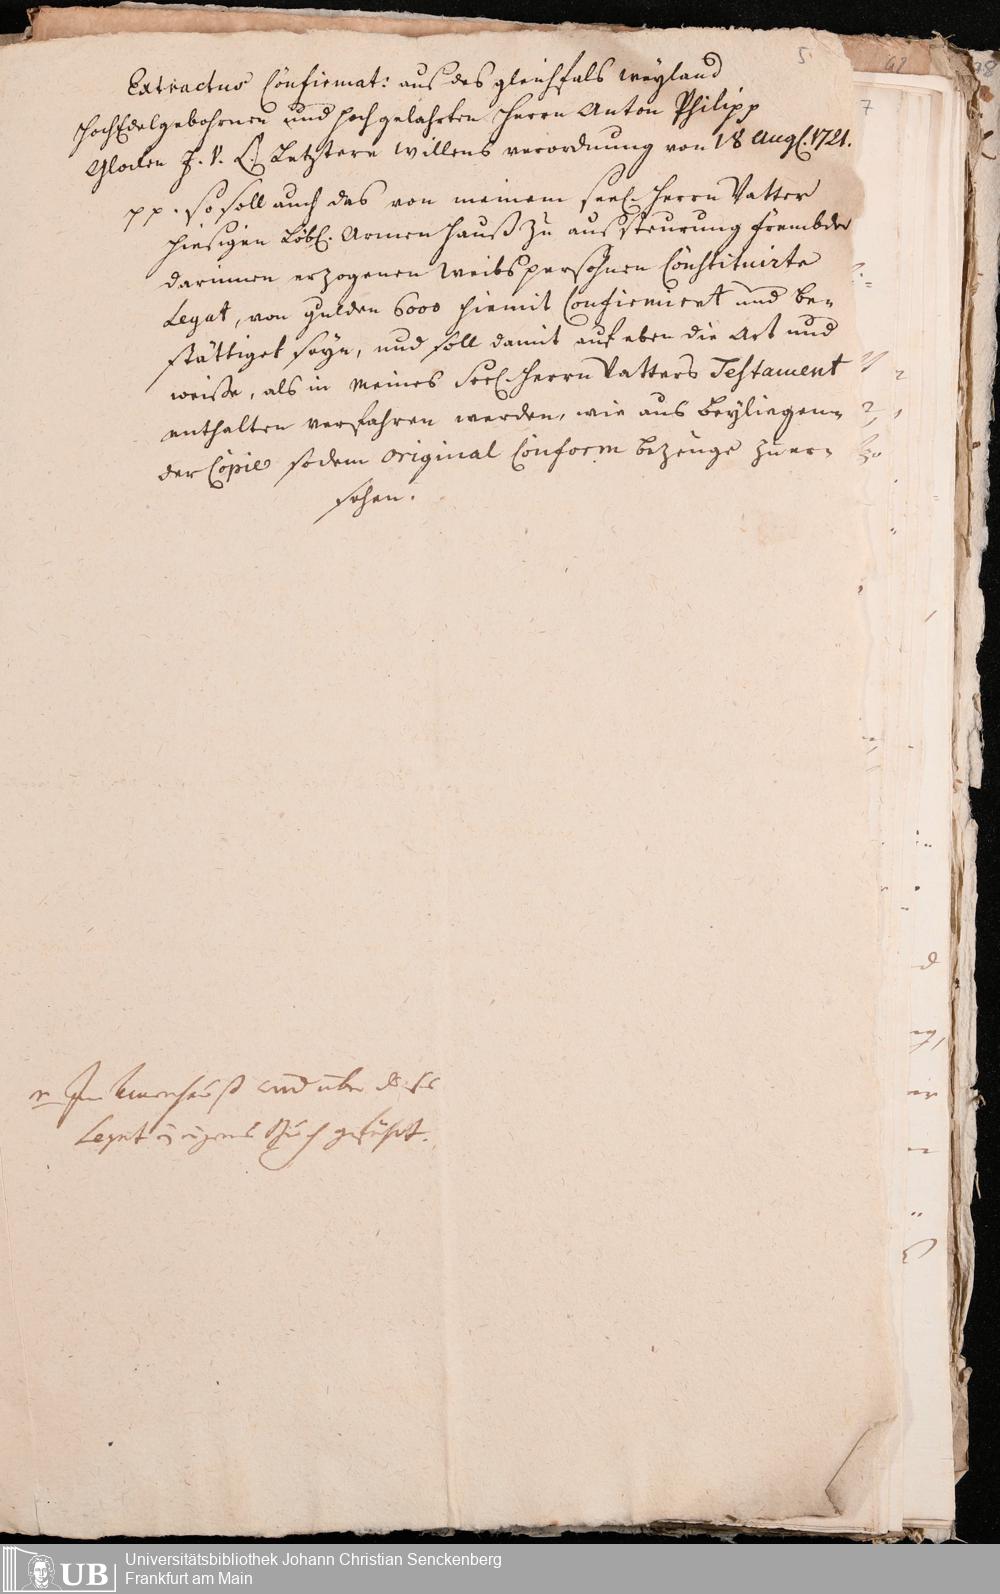 5.
Extractus Confirmat: aus des gleichfals weyland
HochEdelgebohrnen und hochgelahrten Herrn Anton Philipp
Glocken J. V. L. Letztere willens verordnung von 18 Augl. 1721.
pp. so soll auch das von meinem seel. Herrn Vatter
hiesigen Löbl. Armen Hauß zu aussteurung frembder
darinnen erzogenen Weibspersohnen Constituirte
Legat, von gulden 6000 hiemit Confirmirt und be=
stättiget seyn, und soll damit auf eben die Art und
weiße, als in meines Seel. Herrn Vatters Testament
enthalten verfahren werden, wie aus beyliegen=
der Copie so dem Original Conform bezeuge zu er=
sehen.
Im Armenhauß wird über dieses
Legat ein eigenes Buch geführt.
UB
Universitätsbibliothek Johann Christian Senckenberg
Frankfurt am Main